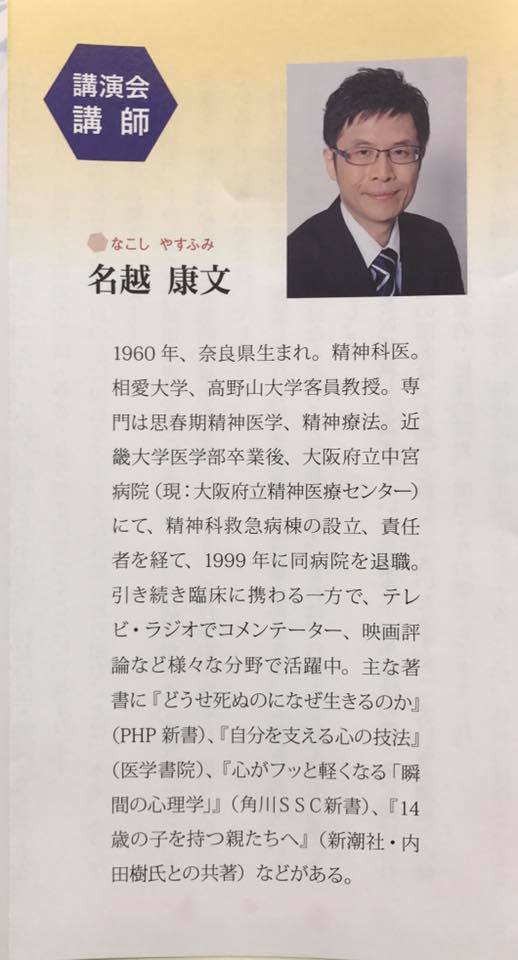 講演会
講師
なこし やすふみ
名越 康文
1960年、奈良県生まれ。精神科医。
相愛大学、高野山大学客員教授。専
門は思春期精神医学、精神療法。近
畿大学医学部卒業後、大阪府立中宮
病院（現：大阪府立精神医療センター）
にて、精神科救急病棟の設立、責任
者を経て、1999年に同病院を退職。
引き続き臨床に携わる一方で、テレ
ビ・ラジオでコメンテーター、映画評
論など様々な分野で活躍中。主な著
書に『どうせ死ぬのになぜ生きるのか』
（PHP新書）、『自分を支える心の技法』
（医学書院）、『心がフッと軽くなる「瞬
間の心理学」』（角川ＳＳＣ新書）、『14
歳の子を持つ親たちへ』（新潮社・内
田樹氏との共著）などがある。